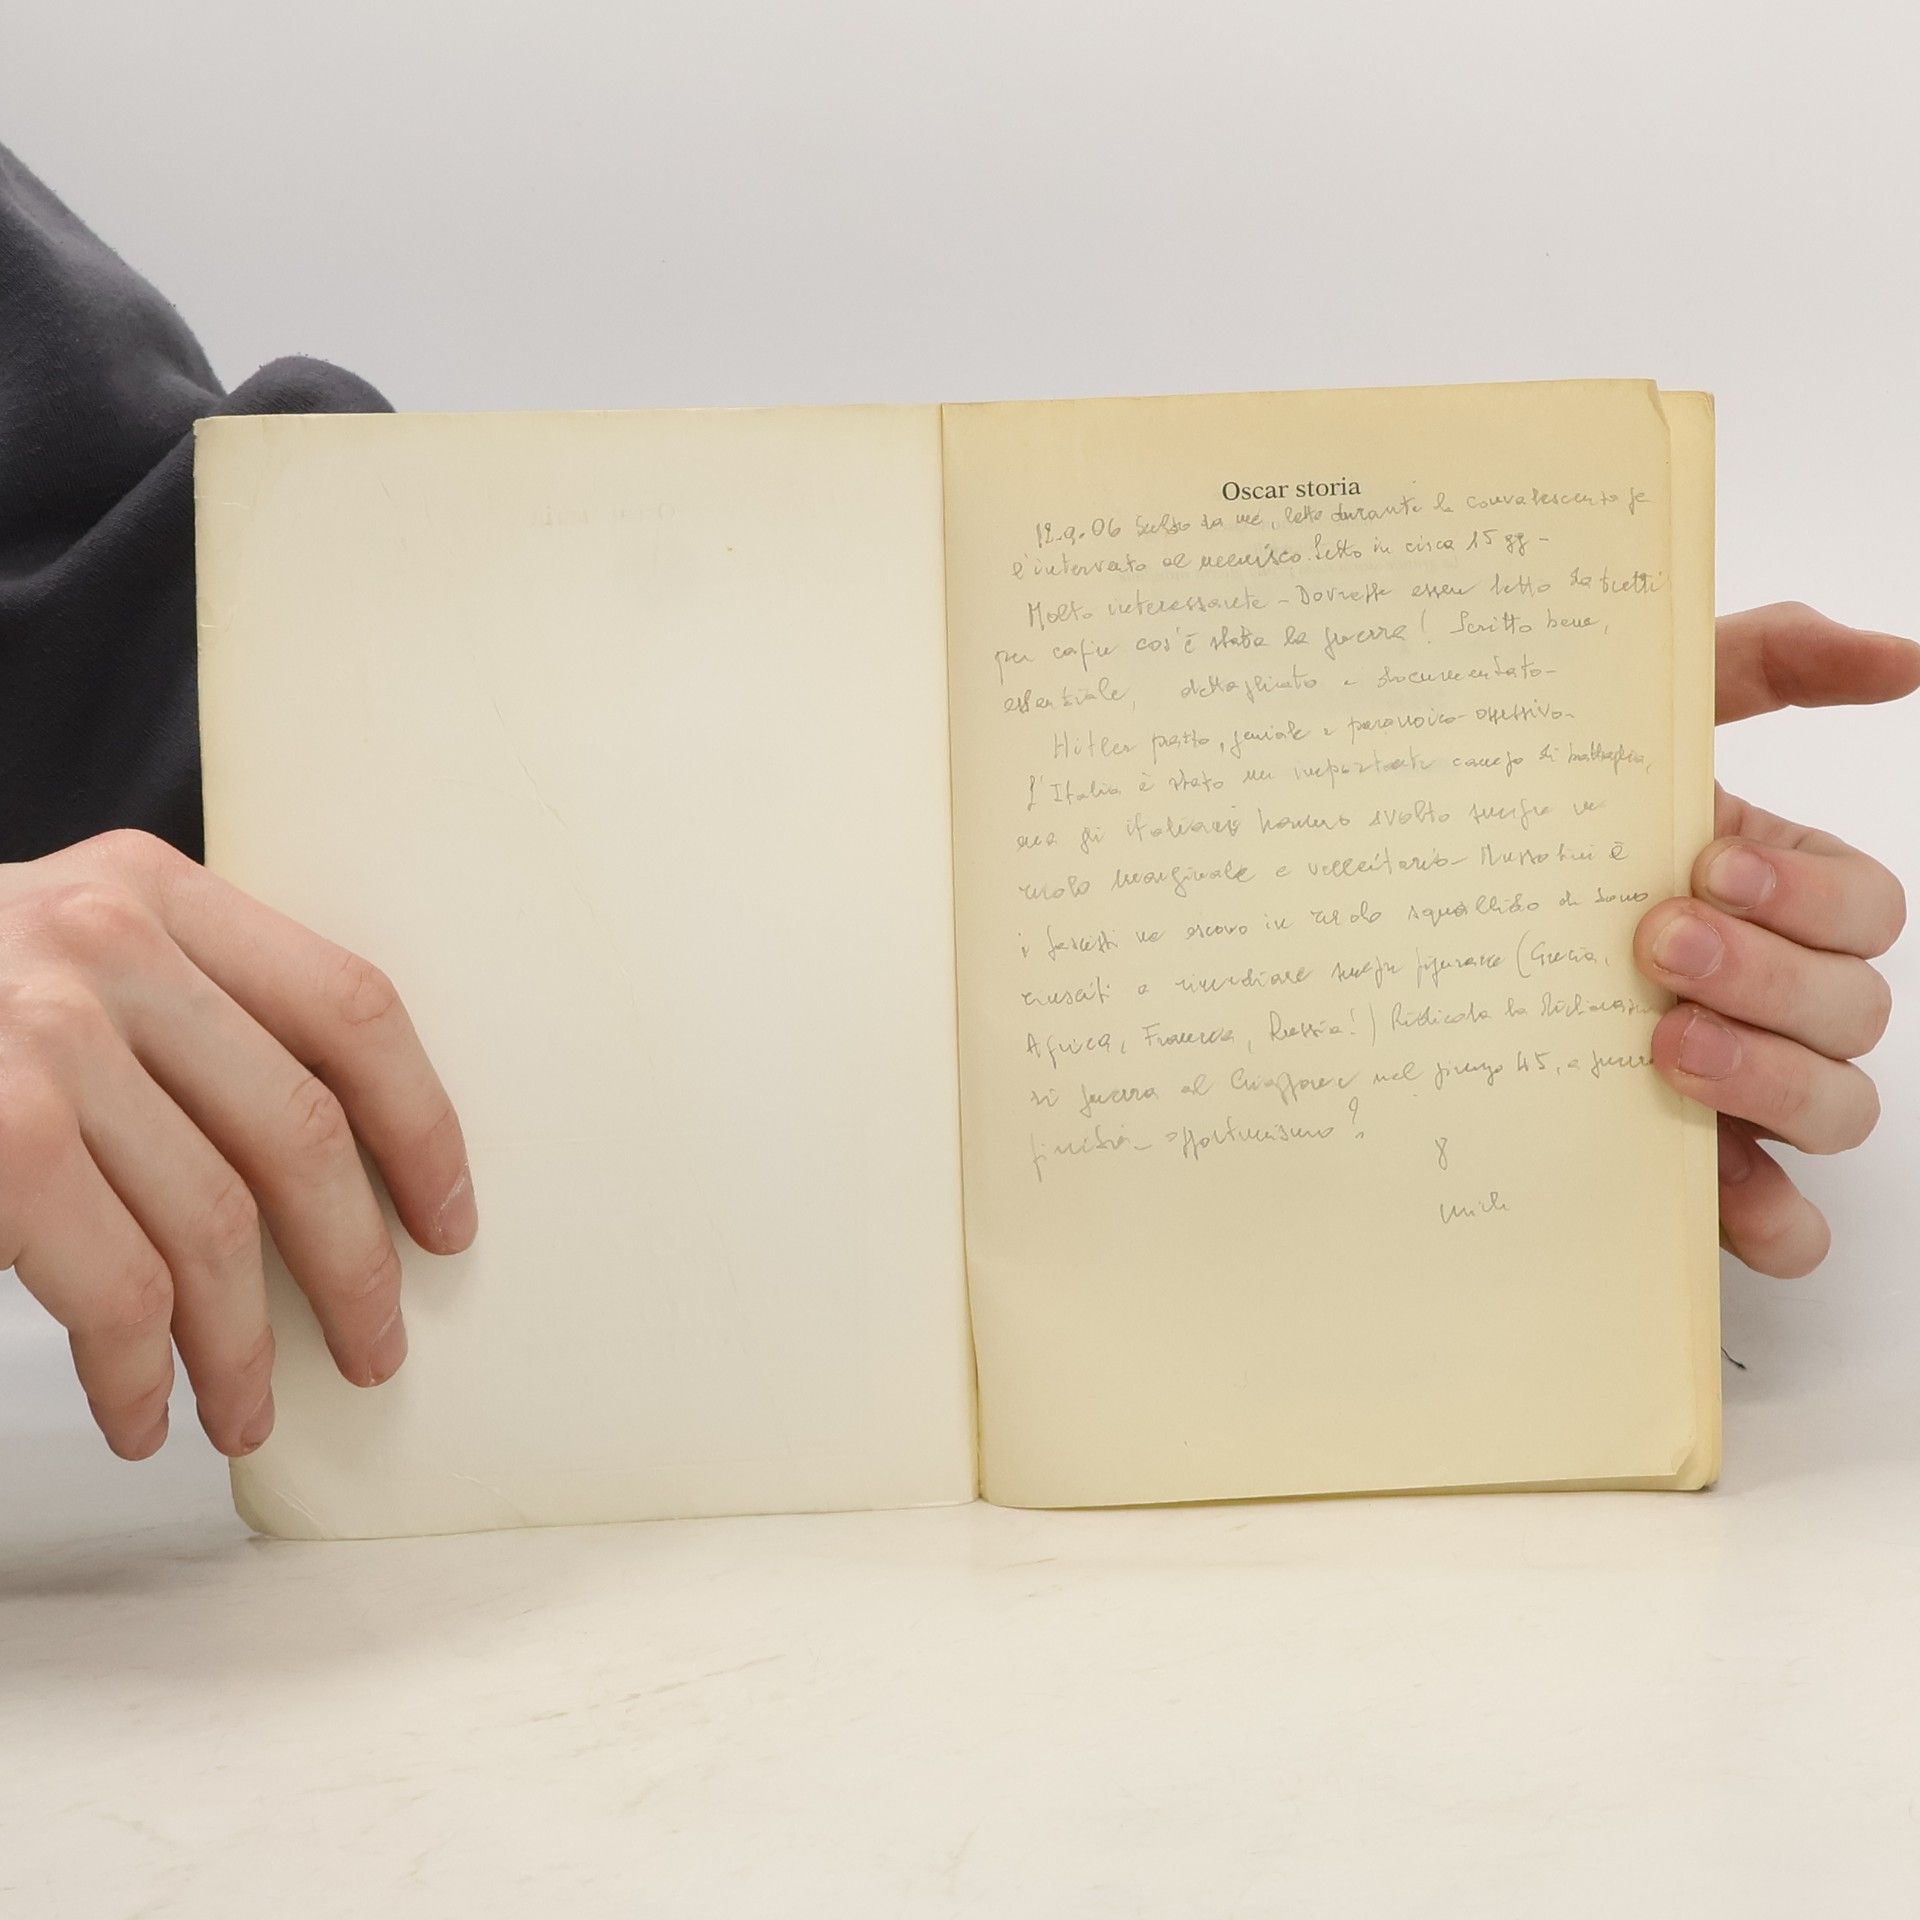 Oscar storia
12.9.06 Scelto da me, letto durante la convalescenza per
l'intervento al menisco. Letto in circa 15 gg -
Molto interessante - Dovrebbe essere letto da tutti
per capire cos'è stata la guerra! Scritto bene,
essenziale, dettagliato e documentato -
Hitler pazzo, geniale e paranoico-ossessivo -
L'Italia è stato un importante campo di battaglia,
ma gli italiani hanno svolto sempre un
ruolo marginale e velleitario - Mussolini e
i fascisti ne escono in ruolo squallido di sono
riusciti a rimediare sempre figuracce (Grecia,
Africa, Francia, Russia!) Ridicola la dichiarazione
di guerra al Giappone nel giugno 45, a guerra
finita - opportunismo?
8